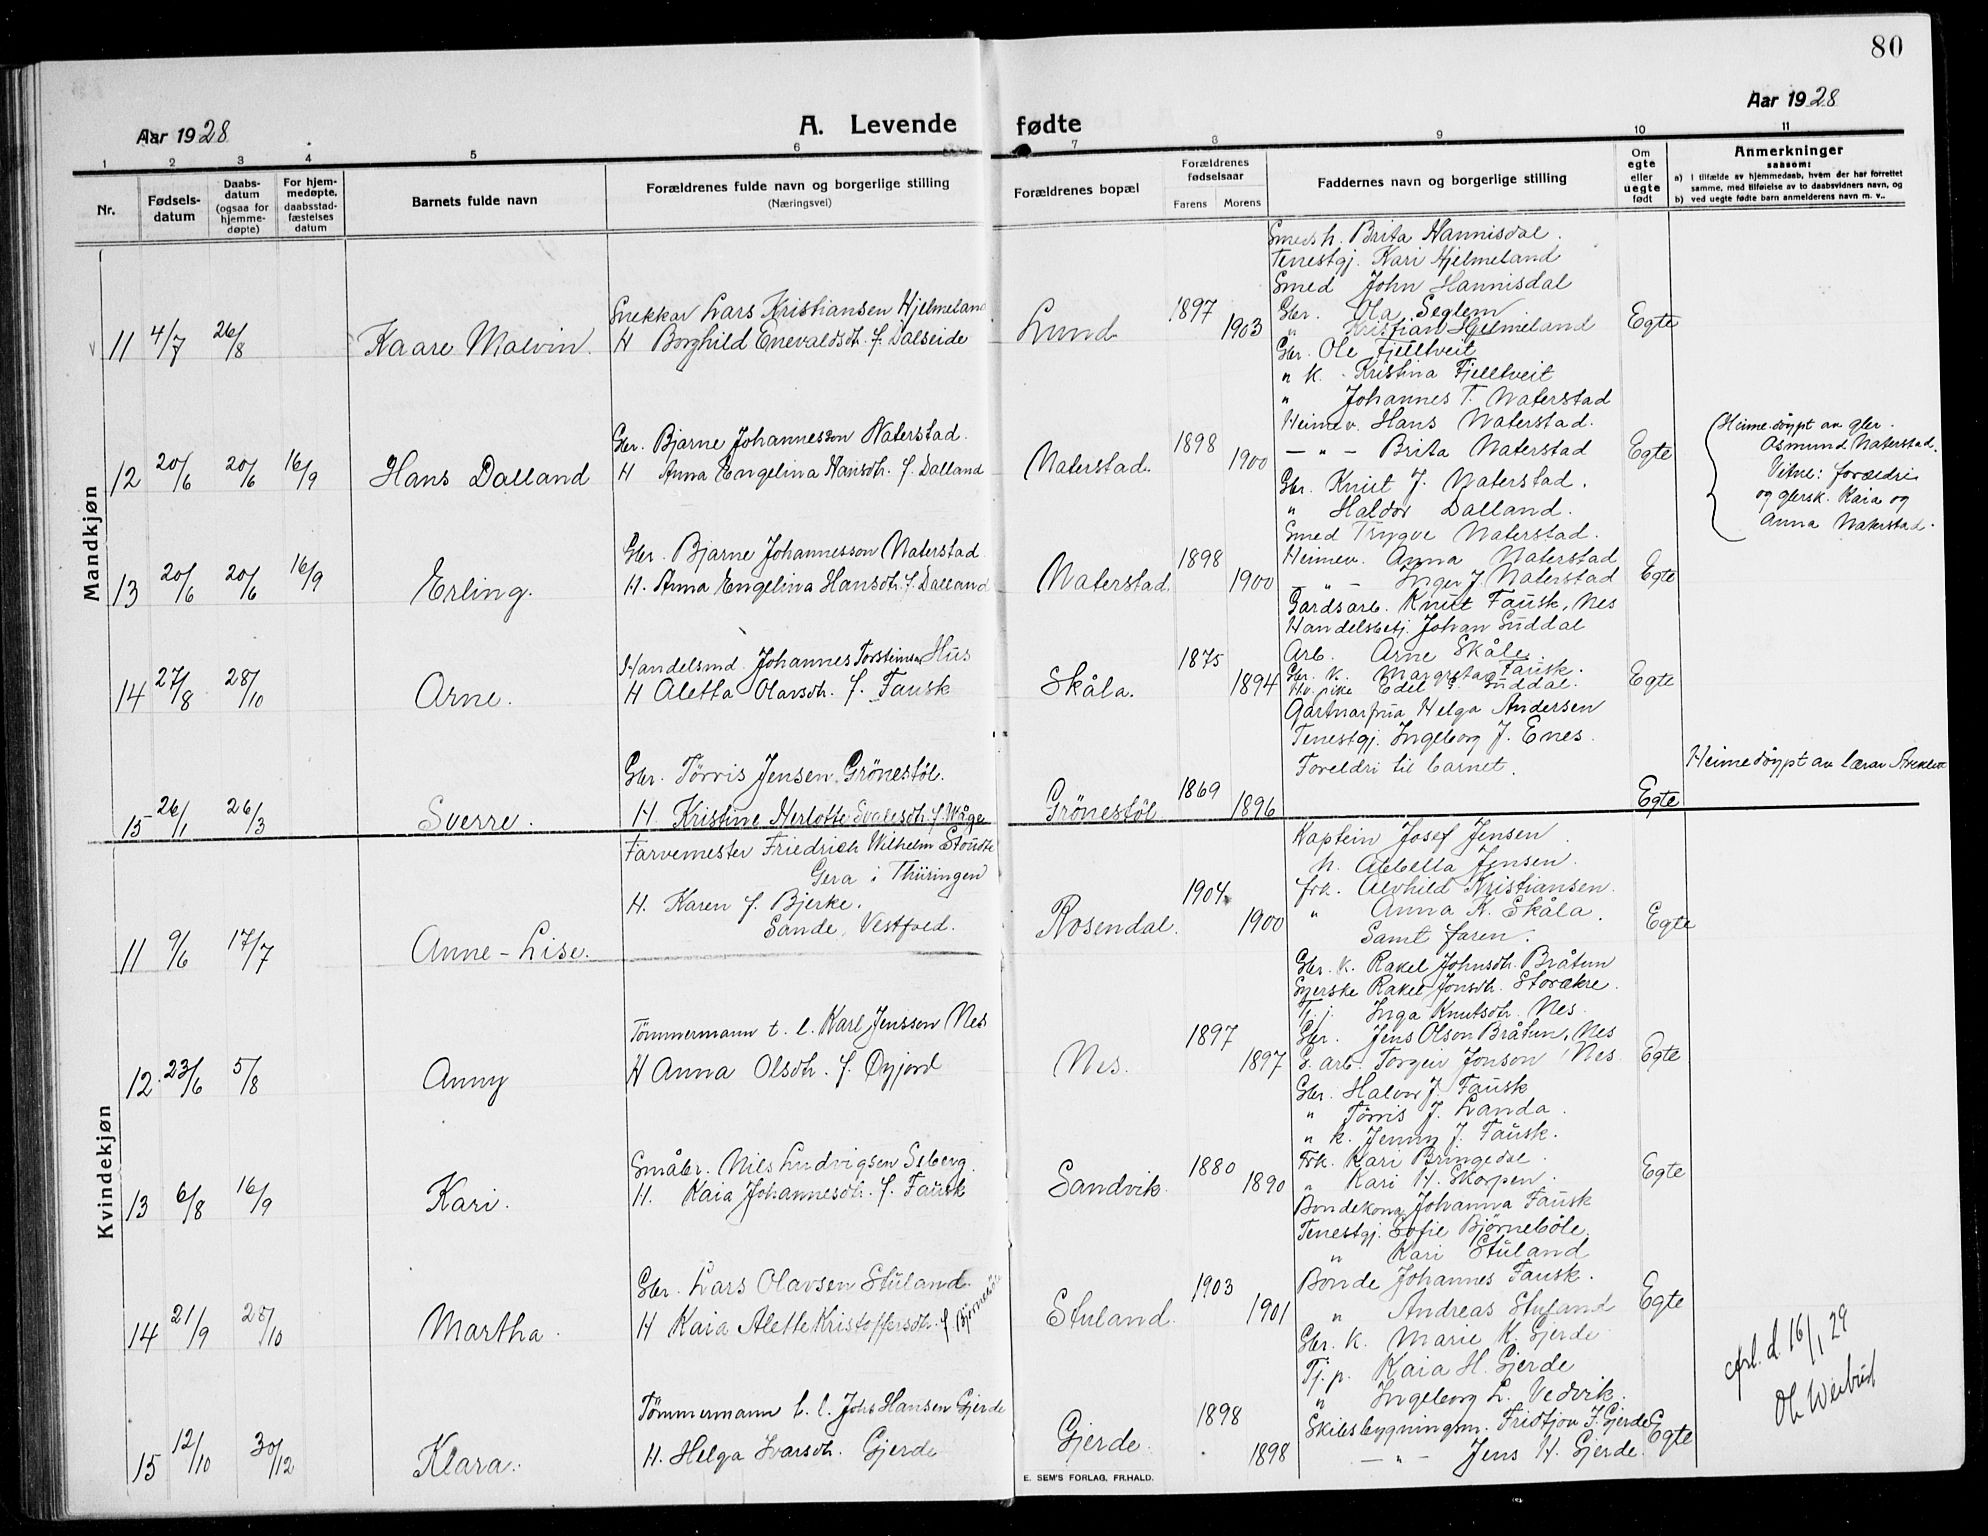 80
Aar 1928
A. Levende fødte
Aar 1928
1 2 3 4 5 6 7 8 9 10 11
Nr.
Fødsels-datum
Daabs-datum (ogsaa for hjemme-døpte)
For hjem-medøpte, daabsstad-fæstelses datum
Barnets fulde navn
Forældrenes fulde navn og borgerlige stilling
(Næringsvei)
Forældrenes bopæl
Forældrenes fødselsaar
Farens Morens
Faddernes navn og borgerlige stilling
Om egte eller uegte født
Anmerkninger
saasom:
a) i tilfælde av hjemmedaab, hvem der har forrettet samme, med tilføielse av to daabsvidners navn, og
b) ved uegte fødte barn anmelderens navn m. v..
Mandkjøn
11 4/7 26/8 Kaare Malvin.
Snekkar Lars Kristiansen Hjelmeland
H Borghild Enevaldsdtr. f. Dalseide
Lund 1897 1903
Smedsh. Brita Hannisdal.
Tenestgj. Kari Hjelmeland
Smed John Hannisdal
Gbr. Ola Seglem
" Kristian Hjelmeland
Egte
12 20/6 20/6 16/9 Hans Dalland
Gbr. Bjarne Johannesson Naterstad.
H Anna Engelina Hansdtr. f. Dalland
Naterstad. 1898 1900
Gbr. Ole Fjelltveit
" k. Kristina Fjelltveit
" Johannes T. Naterstad
Heimev. Hans Naterstad.
— " — Brita Naterstad
Egte
Heime-döypt av gbr.
Osmund Naterstad.
Vitne: foreldri
og gbrsk. Kaia og
Anna Naterstad.
13 20/6 20/6 16/9 Erling.
Gbr. Bjarne Johannesson Naterstad
H. Anna Engelina Hansdtr. f. Dalland
Naterstad. 1898 1900
Gbr. Knut J. Naterstad.
" Haldor Dalland.
Smed Trygve Naterstad.
Heimev. Anna Naterstad
— " — Inger J. Naterstad
Egte
14 27/8 28/10 Arne.
Handelsmd. Johannes Torsteinsen Hus
H Aletta Olavsdtr. f. Fausk
Skåla. 1875 1894
Gardsarb. Knut Fausk, Nes
Handelsbetj. Johan Guddal
Arb. Arne Skåle.
Gbr. k. Margreta Fausk.
Hv. pike Edel G. Guddal.
Gartnarfrua Helga Andersen
Tenestgj. Ingeborg J. Enes.
Egte
15 26/1 26/3 Sverre.
Gbr. Tørris Jensen Grönestöl.
H. Kristine Herlotte f. Våge
Grönestöl 1869 1896
Foreldri til barnet.
Egte
Heimedöypt av lærar
Kvindekjøn
11 9/6 17/7 Anne-Lise.
Farvemester Friedrich Wilhelm
Gera i Thüringen
H. Karen f. Bjerke.
Sande, Vestfold.
Rosendal. 1904 1900
Kaptein Josef Jensen
h. Abbella Jensen.
frk. Alvhild Kristiansen.
" Anna K. Skåla.
Samt faren.
Egte
12. 23/6 5/8 Anny
Tömmermann t. l. Karl Jensson Nes
H Anna Olsdtr. f. Øyjord
Nes. 1897 1897
Gbr. k. Rakel Johnsdtr. Bråtun
Syerske Rakel Jonsdtr. Storækre.
Tj. j. Inga Knutsdtr. Nes.
Gbr. Jens Olson Bråtun, Nes
G. arb. Torgeir Jonson, Nes
Egte
13 6/8 16/9 Kari.
Småbr. Nils Ludvigsen Seberg.
H. Kaia Johannesdtr. f. Fausk
Sandvik. 1880 1890
Gbr. Halvor J. Fausk
" Tørris J. Landa.
" k. Jenny J. Fausk.
Frk. Kari Bringedal.
" Kari H. Skorpen.
Egte
14 21/9 28/10 Martha.
Gbr. Lars Olavsen Stuland.
H Kaia Alette Kristoffersdtr. f. Björneböle
Stuland. 1903 1901
Bondekona Johanna Fausk
Tenestgj. Sofie Björneböle.
" Kari Stuland
Bonde Johannes Fausk.
" Andreas Stuland
Egte
15 12/10 30/12 Klara.
Tömmermann t. l. Johs Hansen Gjerde
H. Helga Ivarsdtr. Gjerde
Gjerde. 1898 1898
Gbr. k. Marie K. Gjerde
Tj. p. Kaia H. Gjerde
" Ingeborg L. Vedvik.
Skibsbygningsm. Fridtjov J. Gjerde
— " — Jens H. Gjerde.
Egte
Avl. d. 16/1 29
E. SEM'S FORLAG, FR.HALD.